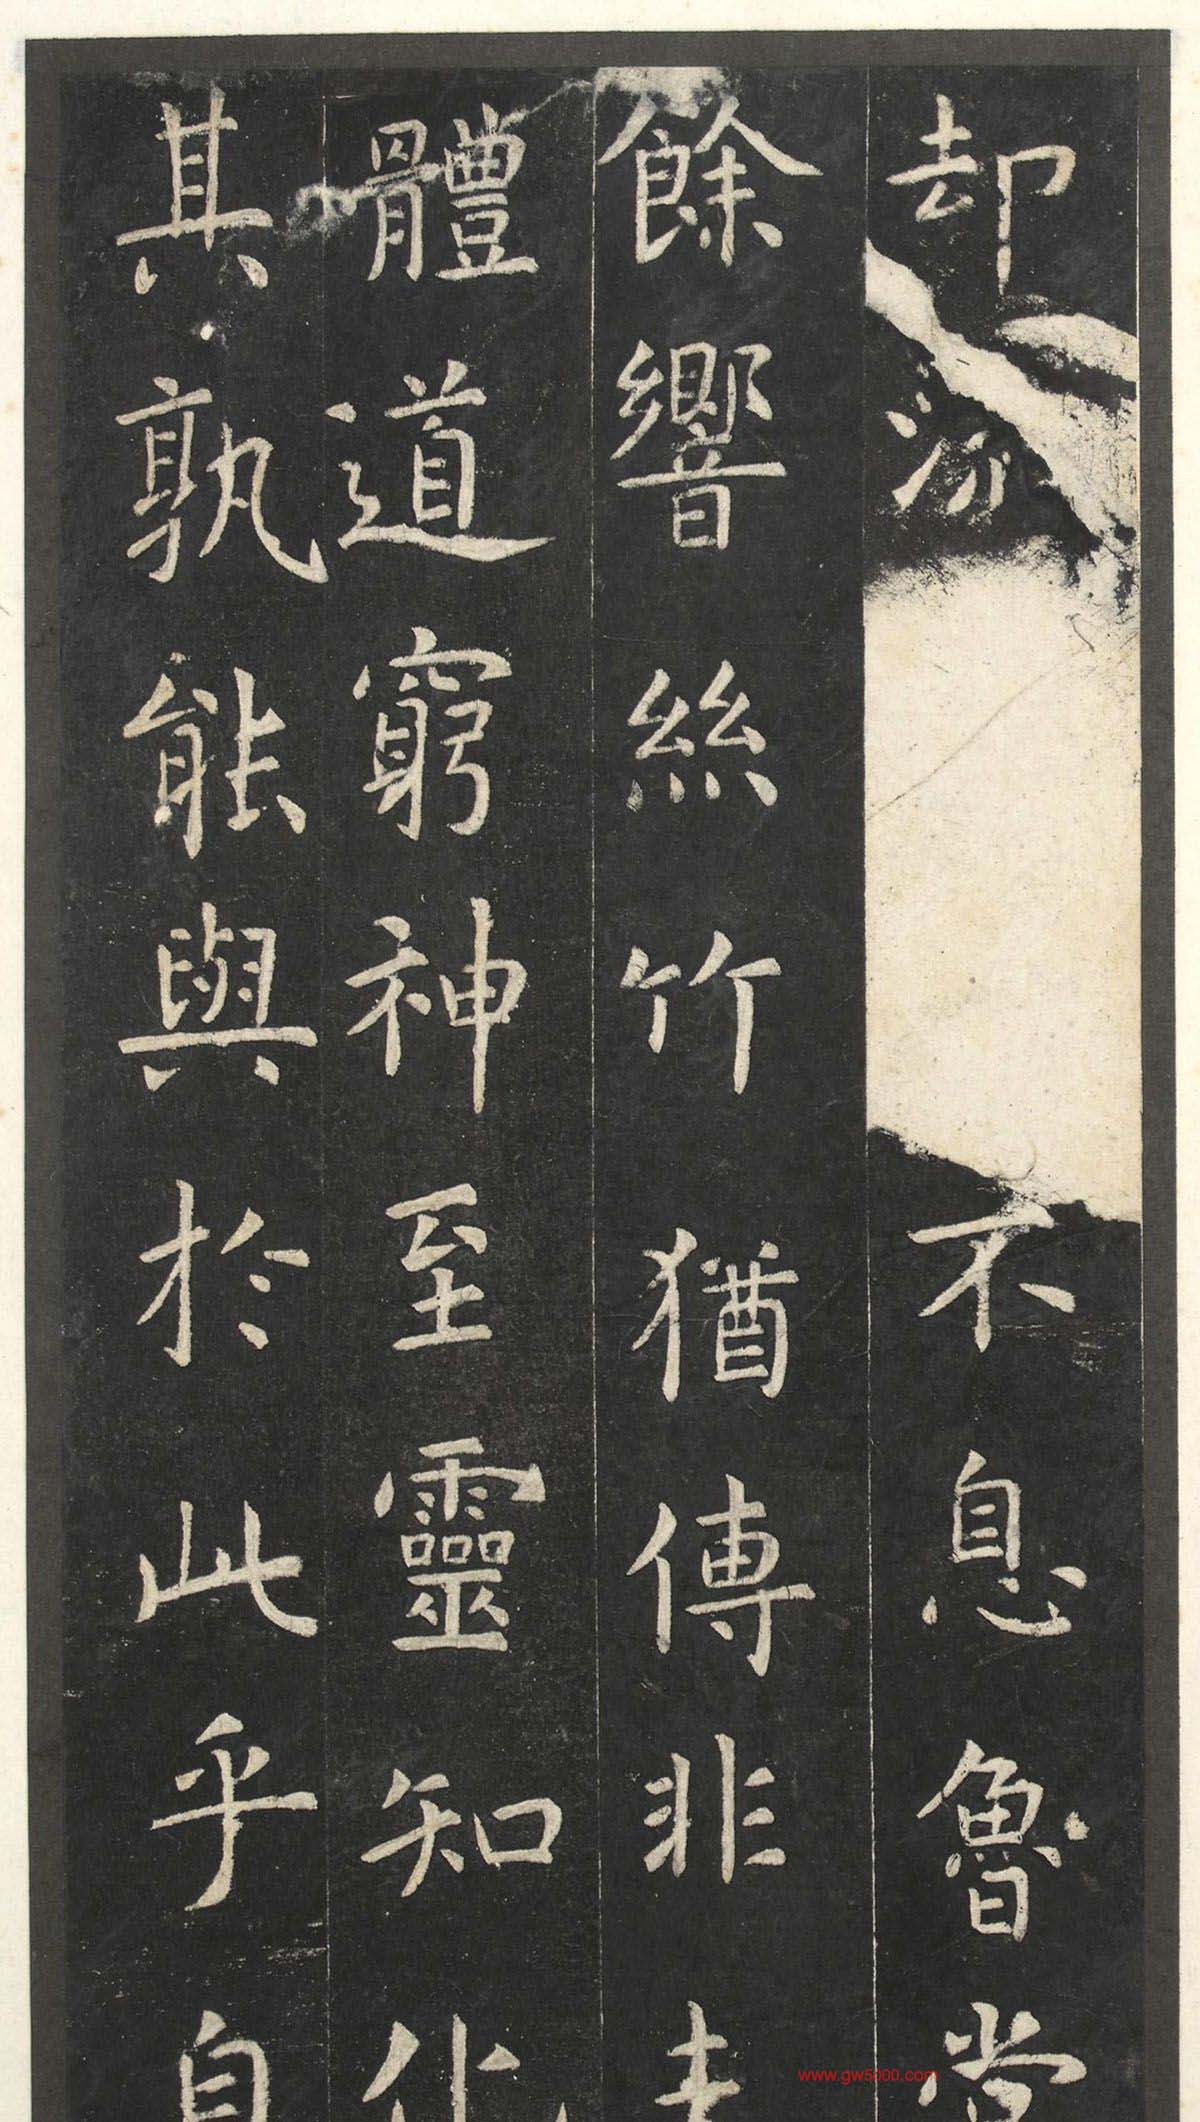 却流不息魯
餘響絲竹猶傳非
體道窮神至靈知化
其孰能與於此乎自
www.gw5000.com